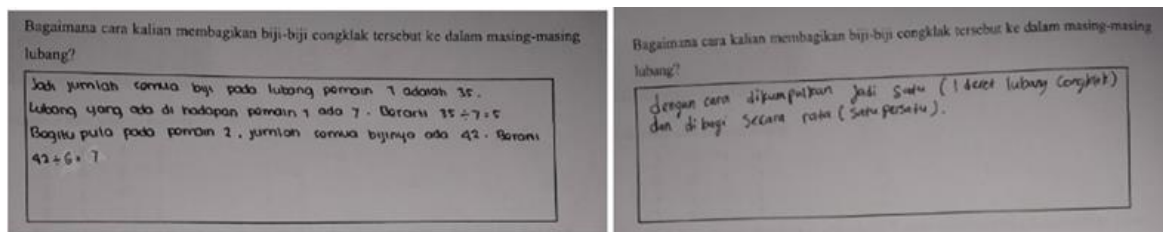 Bagaimana cara kalian membagikan biji-biji congklak tersebut ke dalam masing-masing
lubang?
Jadi jumlah semua biji pada lubang pemain 1 adalah 35.
Lubang yang ada di hadapan pemain 1 ada 7. Berarti 35 ÷ 7 = 5
Begitu pula pada pemain 2, jumlah semua bijinya ada 42. Berarti
42 ÷ 6 = 7
Bagaimana cara kalian membagikan biji-biji congklak tersebut ke dalam masing-masing
lubang?
dengan cara dikumpulkan jadi satu (1 deret lubang congklak)
dan dibagi secara rata (satu persatu).